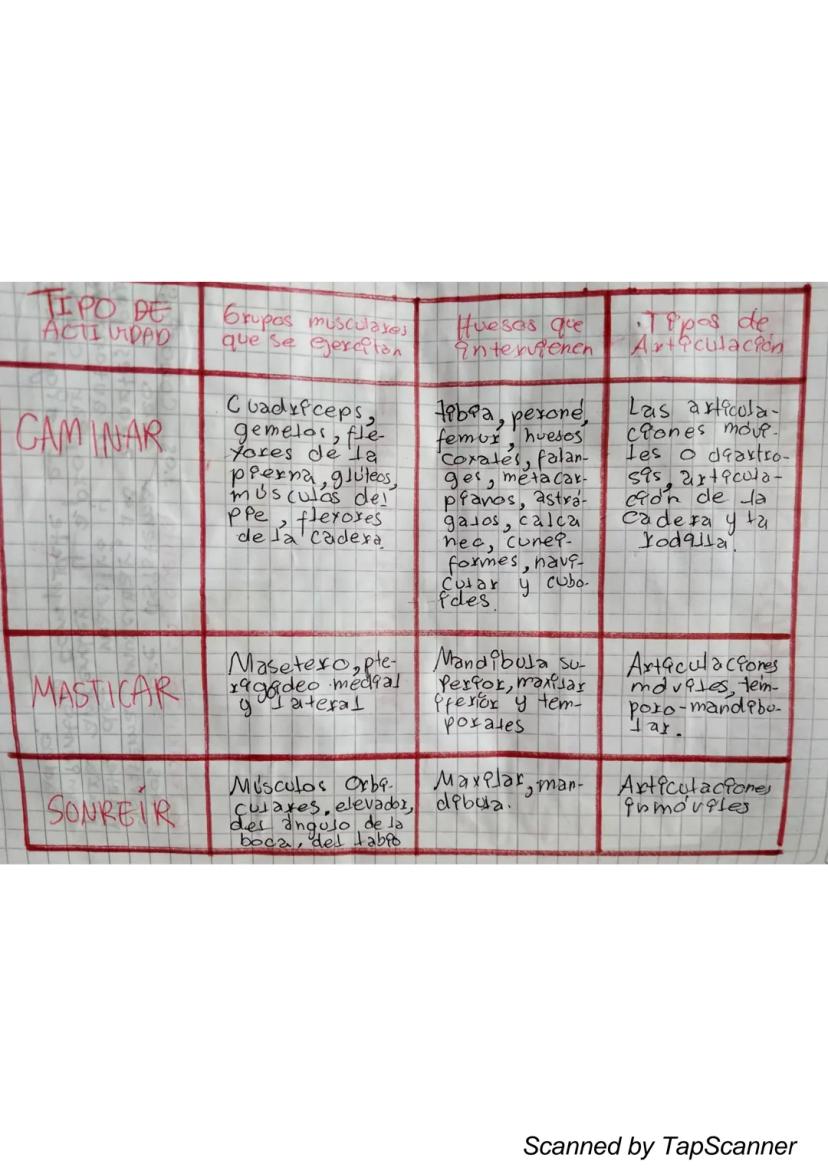 TIPO DE
ACTIVIDAD
Grupos musculares
que se ejercitan
Huesos que
intervienen
.Tipos de
Articulación
CAMINAR
Cuadríceps,
gemelos, fle-
xores de la
pierna, glúteos,
músculos del
pie, flexores
de la cadera.
tibia, peroné,
femur, huesos
coxales, falan-
ges, metacar-
pianos, astrá-
galos, calca
neo, cunei-
formes, navi-
cular y cubo-
ides.
Las articula-
ciones móvi-
les o diartro-
sis, articula-
ción de la
cadera y la
rodilla.
MASTICAR
Masetero, pte-
rigoideo medial
y lateral
Mandíbula su-
perior, maxilar
iferior y tem-
porales
Articulaciones
móviles, tem-
poro-mandibu-
lar.
SONREÍR
Músculos Orbi-
culares, elevador,
del ángulo de la
boca, del labio
Maxilar, man-
díbula.
Articulaciones
inmóviles
Scanned by TapScanner